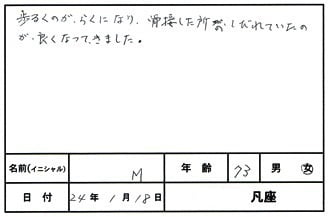 歩るくのが、らくになり、骨接した所が、しびれていたの
が、良くなって、きました。
名前(イニシャル) M 年齢 73 男 女
日付 24年 1月 18日 凡座